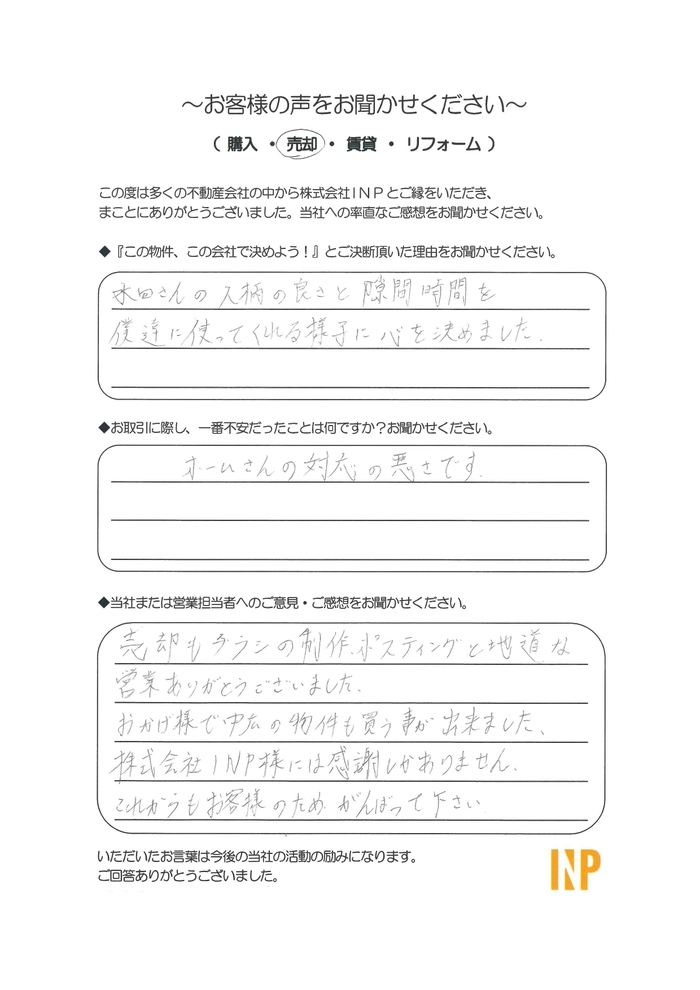 ～お客様の声をお聞かせください～
（ 購入 ・ 売却 ・ 賃貸 ・ リフォーム ）
この度は多くの不動産会社の中から株式会社ＩＮＰとご縁をいただき、
まことにありがとうございました。当社への率直なご感想をお聞かせください。
◆『この物件、この会社で決めよう！』とご決断頂いた理由をお聞かせください。
水田さんの人柄の良さと隙間時間を
僕達に使ってくれる様子に心を決めました.
◆お取引に際し、一番不安だったことは何ですか？お聞かせください。
ホームさんの対応の悪さです.
◆当社または営業担当者へのご意見・ご感想をお聞かせください。
売却もチラシの制作、ポスティングと地道な
営業ありがとうございました.
おかげ様で中広の物件も買う事が出来ました、
株式会社INP様には感謝しかありません.
これからもお客様のため がんばって下さい
いただいたお言葉は今後の当社の活動の励みになります。
ご回答ありがとうございました。
INP